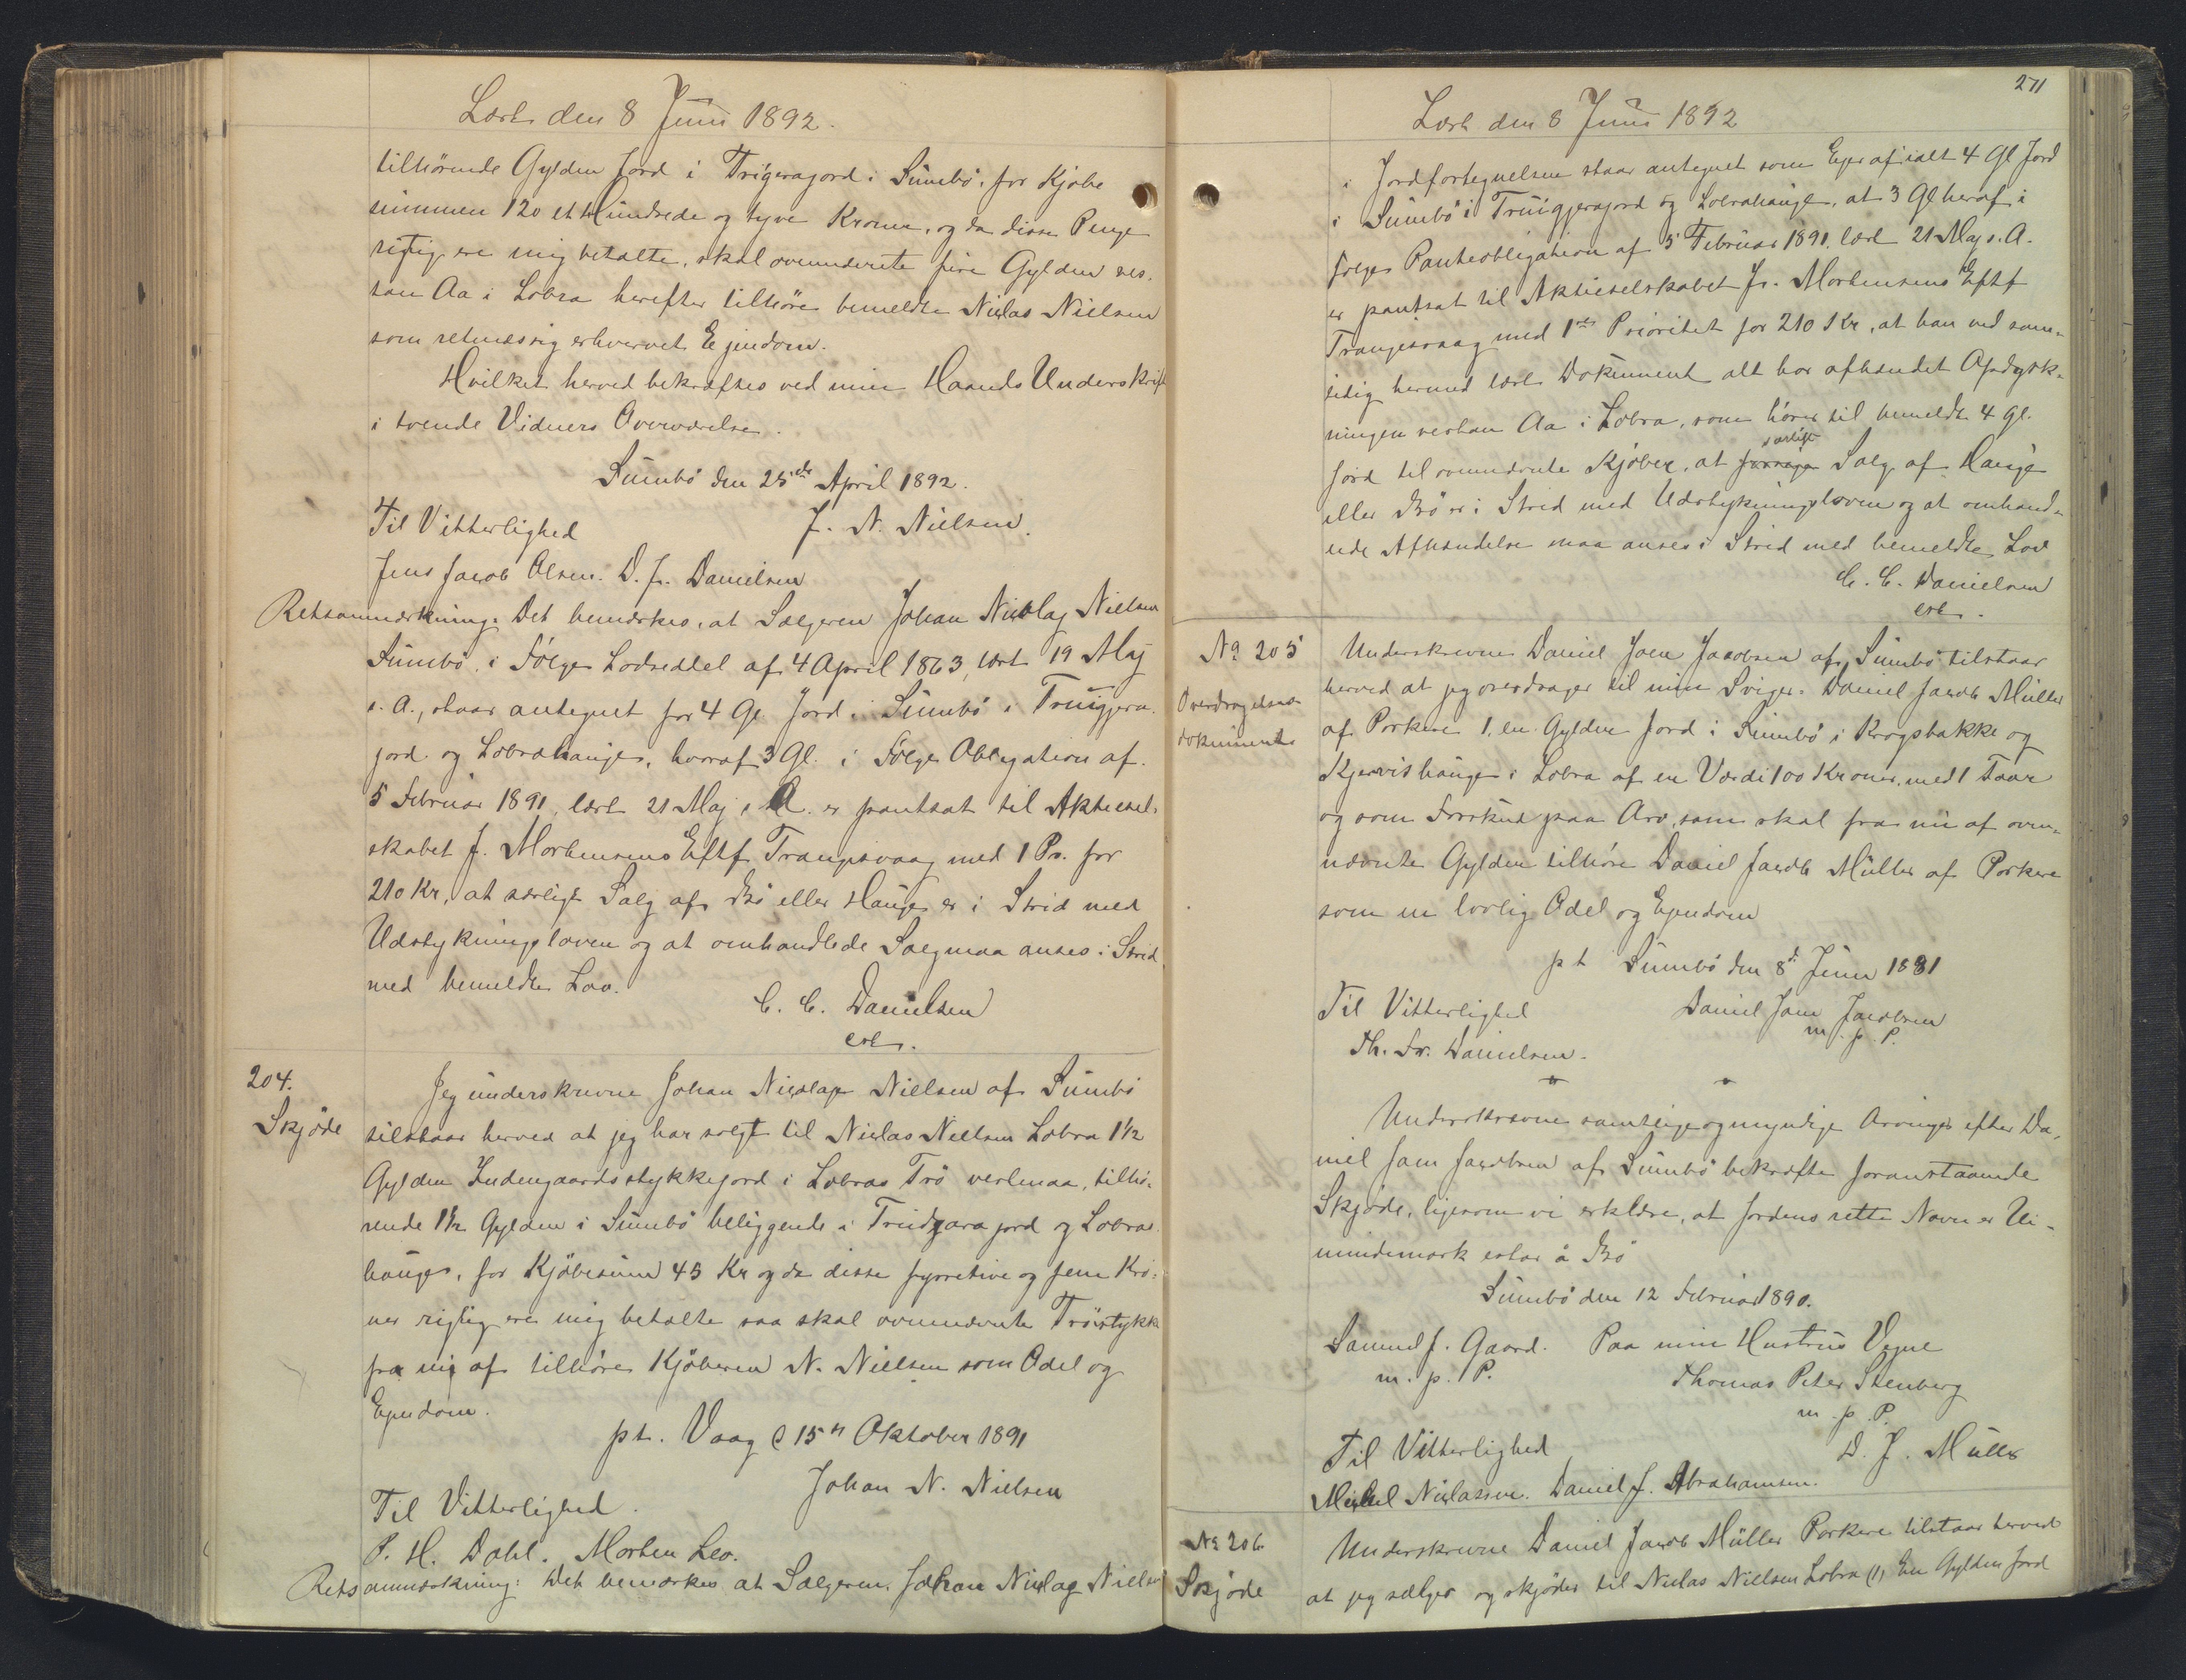 Læst den 8 Juni 1892.
tilhørende Gylden Jord i Trigerajord i Sumbø, for Kjøbe
summen 120 et Hundrede og tyve Kroner, og da disse Penge
rigtig ere mig betalte, skal ovennævnte fire Gylden ves-
tan Aa i Lobra herefter tilhöre bemeldte Niclas Nielsen
som retmæssig erhvervet Ejendom.
Hvilket herved bekræftes ved min Haands Underskrift
i tvende Vidners Overværelse.
Sumbö den 25de April 1892.
Til Vitterlighed J. N. Nielsen.
Jens Jacob Olsen. D. J. Danielsen
Retsanmærkning. Det bemærkes, at Sælgeren Johan Nicolaj Nielsen
Sumbö, i Fölge Lodseddel af 4 April 1863, læst 19 Maj
s. A., staar antegnet for 4 Gl. Jord i Sumbö i Truigjera-
jord og Lobrahauge, hvoraf 3 Gl. i Fölge Obligation af
5 Februar 1891, læst 21 Maj s. A. er pantsat til Aktiesel-
skabet J. Mortensens Eftf. Trangisvaag med 1 Pr. for
210 Kr, at særligt Salg af Bö eller Hauge er i Strid med
Udstykningsloven og at omhandlede Salg maa anses i Strid
med bemeldte Lov.
C. C. Danielsen
cst.
204.
Skjøde
Jeg underskrevne Johan Nicolaje Nielsen af Sumbö
tilstaar herved at jeg har solgt til Niclas Nielsen Lobra 1½
Gylden Indengaardsstykkejord i Lobras Trö verlmaa, tilhö-
rende 1½ Gylden i Sumbö beliggende i Truidgara jord og Lobras
hauge, for Kjöbesum 45 Kr og da disse fyrretive og fem Kro-
ner rigtig ere mig betalte saa skal ovennævnte Tröstykke
fra nu af tilhöre Kjöberen N. Nielsen som Odel og
Ejendom.
pt. Vaag d 15n Oktober 1891
Johan N. Nielsen
Til Vitterlighed.
P. H. Dahl. Morten Leo.
Retsanmærkning: Det bemærkes at Sælgeren Johan Nicolaj Nielsen
271
Læst den 8 Juni 1892
i Jordfortegnelsen staar antegnet som Ejer af ialt 4 Gl Jord
i Sumbö i Truigjerajord og Lobrahauge, at 3 Gl heraf i
Følge Panteobligation af 5 Februar 1891, læst 21 Maj s. A.
er pantsat til Aktieselskabet J. Mortensens Eftf
Trangisvaag med 1ste Prioritet for 210 Kr, at han ved sam-
tidig hermed læst Dokument alt har afhændet Afdyrk-
ningen vestan Aa i Lobra, som hörer til bemeldte 4 Gl.
særligt
Jord til ovennævnte Kjöber, at Salg af Hauge
eller Bö er i Strid med Udstykningsloven og at omhand-
lede Afhændelse maa anses i Strid med bemeldte Lov
C. C. Danielsen
cst.
No 205
Overdragelses-
dokument
Underskrevne Daniel Joen Jacobsen af Sumbö tilstaar
herved at jeg overdrager til min Sviger. Daniel Jacob Müller
af Porkere 1, en Gylden Jord i Sumbö i Krogsbakke og
Kjervishauge i Lobra af en Værdi 100 Kroner, med 1 Faar
og som Forskud paa Arv, som skal fra nu af oven-
nævnte Gylden tilhöre Daniel Jacob Müller af Porkere
som en lovlig Odel og Ejendom
pt Sumbö den 8d Juni 1881
Til Vitterlighed Daniel Joen Jacobsen
Th. Fr. Danielsen. m. p. P.
Underskrevne samtlige og myndige Arvinger efter Da-
niel Joen Jacobsen af Sumbö bekræfte foranstaaende
Skjöde, ligesom vi erklære, at Jordens rette Navn er Ui-
mundemark estar á Bö
Sumbö den 12 Februar 1890.
Samuel J. Gaard. Paa min Hustrus Vegne
m. p. P. Thomas Peter Stenberg
m. p. P.
Til Vitterlighed D. J. Müller
Michel Niclassen. Daniel J. Abrahamsen.
No 206
Skjøde
Underskrevne Daniel Jacob Müller Porkere tilstaar herved
at jeg sælger og skjøder til Niclas Nielsen Lobra (1) En Gylden Jord